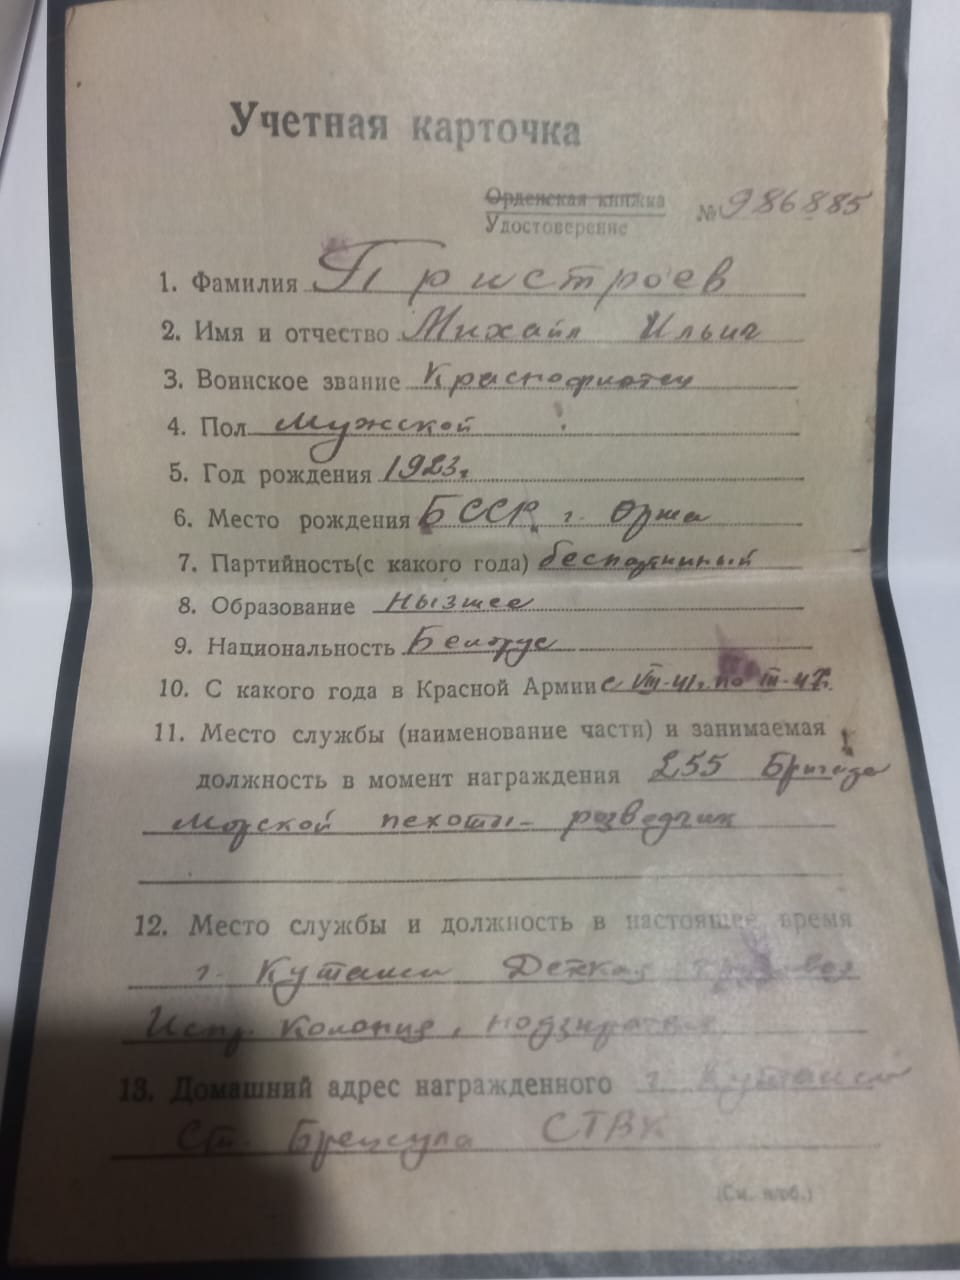 Учетная карточка
Орденская книжка
Удостоверение № 986885
1. Фамилия Пристроев
2. Имя и отчество Михаил Ильич
3. Воинское звание Краснофлотец
4. Пол Мужской
5. Год рождения 1923г
6. Место рождения БССР г. Орша
7. Партийность(с какого года) беспартийный
8. Образование нызшее
9. Национальность Белорус
10. С какого года в Красной Армии с VIII-41г. по III-47г.
11. Место службы (наименование части) и занимаемая
должность в момент награждения 255 Бригада
Морской пехоты- розведчик
12. Место службы и должность в настоящее время
г. Кутаиси Детская
Испр. Колония,
13. Домашний адрес награжденного г. Кутаиси
Ст. СТВК
(См. н/об.)